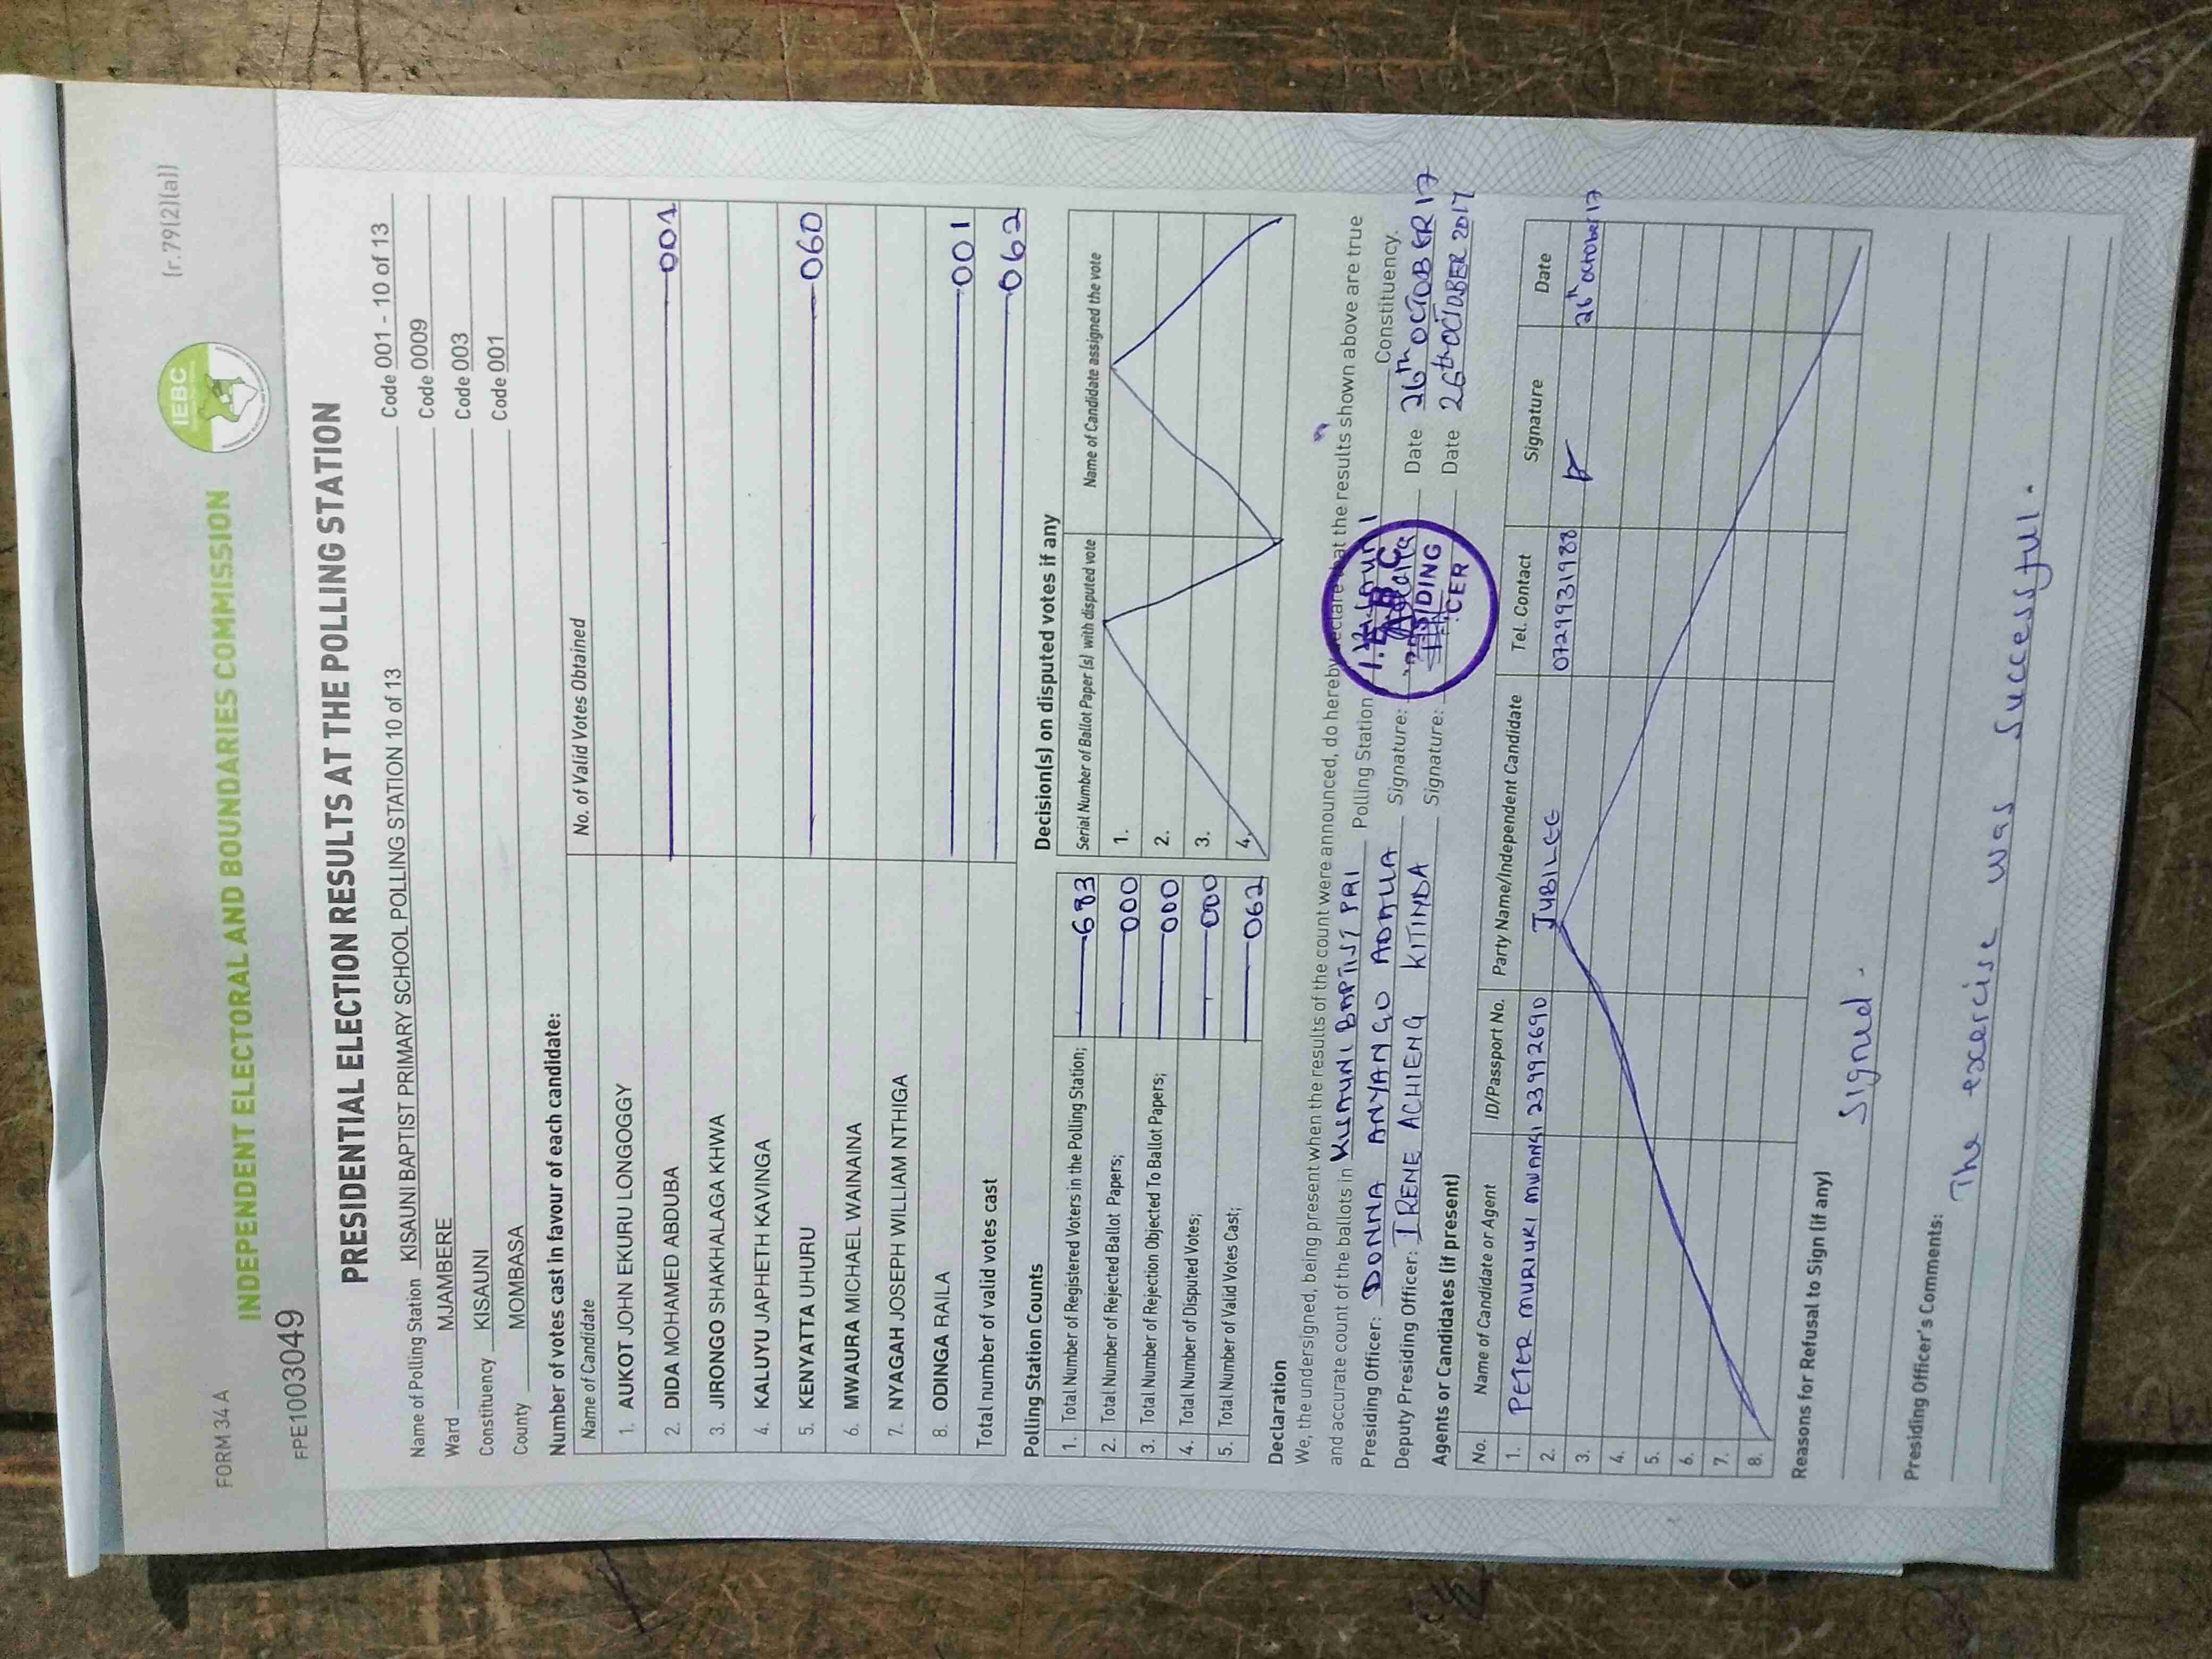 FORM 34A
INDEPENDENT ELECTORAL AND BOUNDARIES COMMISSION
IEBC
(r.79(2)(a))
FPE1003049
PRESIDENTIAL ELECTION RESULTS AT THE POLLING STATION
Name of Polling Station KISAUNI BAPTIST PRIMARY SCHOOL POLLING STATION 10 of 13 Code 001 - 10 of 13
Ward MJAMBERE Code 0009
Constituency KISAUNI Code 003
County MOMBASA Code 001
Number of votes cast in favour of each candidate:
Name of Candidate No. of Valid Votes Obtained
1. AUKOT JOHN EKURU LONGOGGY
2. DIDA MOHAMED ABDUBA 001
3. JIRONGO SHAKHALAGA KHWA
4. KALUYU JAPHETH KAVINGA
5. KENYATTA UHURU 060
6. MWAURA MICHAEL WAINAINA
7. NYAGAH JOSEPH WILLIAM NTHIGA
8. ODINGA RAILA 001
Total number of valid votes cast 062
Polling Station Counts
1. Total Number of Registered Voters in the Polling Station; 683
2. Total Number of Rejected Ballot Papers; 000
3. Total Number of Rejection Objected To Ballot Papers; 000
4. Total Number of Disputed Votes; 000
5. Total Number of Valid Votes Cast; 062
Decision(s) on disputed votes if any
Serial Number of Ballot Paper (s) with disputed vote Name of Candidate assigned the vote
1.
2.
3.
4.
Declaration
We, the undersigned, being present when the results of the count were announced, do hereby declare that the results shown above are true
and accurate count of the ballots in KISAUNI BAPTIST PRI Polling Station Constituency.
Presiding Officer: DONNA ANYANGO ADALLA Signature: Date 26th OCTOBER 17
Deputy Presiding Officer: IRENE ACHIENG KITINDA Signature: Date 26th OCTOBER 2017
I.E.B.C
Agents or Candidates (if present)
No. Name of Candidate or Agent ID/Passport No. Party Name/Independent Candidate Tel. Contact Signature Date
1. PETER MURIUKI MWANGI 23992690 JUBILEE 0729931988 26th october 17
2.
3.
4.
5.
6.
7.
8.
Reasons for Refusal to Sign (if any)
Signed.
Presiding Officer's Comments:
The exercise was successful.